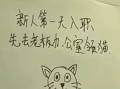 新人第一天入职
先去老板办公室领猫